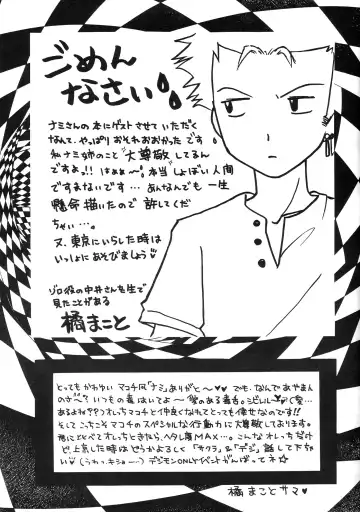 ゴめん
なさい
ナミさんの本にゲストさせていただく
なんて、やっぱりおそれおおかったです
私ナミ姉のこと大尊敬してるん
ですよ!! はぁぁ〜本当しょぼい人間
ですまないです…あんなんでも一生
懸命描いたので許してくだ
ちゃい…。
又、東京にいらした時は
いっしょにあそびましょう♡
ゾロ役の中井さんを生で
見たことがある
橘まこと
とってもかわいいマコチ風「ナミ」ありがと〜♥♥ でも、なんであやまん
の?いつもの毒はいてよ〜♥
あるよね??オレっちマコチと仲良くなれてとっても倖せなのです!!
そしてこちこそマコチのスペシャルな行動力に大尊敬しております。
君にとくべてオレっちときたら、ヘタレ度MAX…。こんなオレっちだけど
ど上気した時はどうかよろしく「サクラ」&「デジ」話して下ちゃ
い♥(うわっキショー…) デジモンONLYイベントがんばってネ☆
橘まことサマ♥